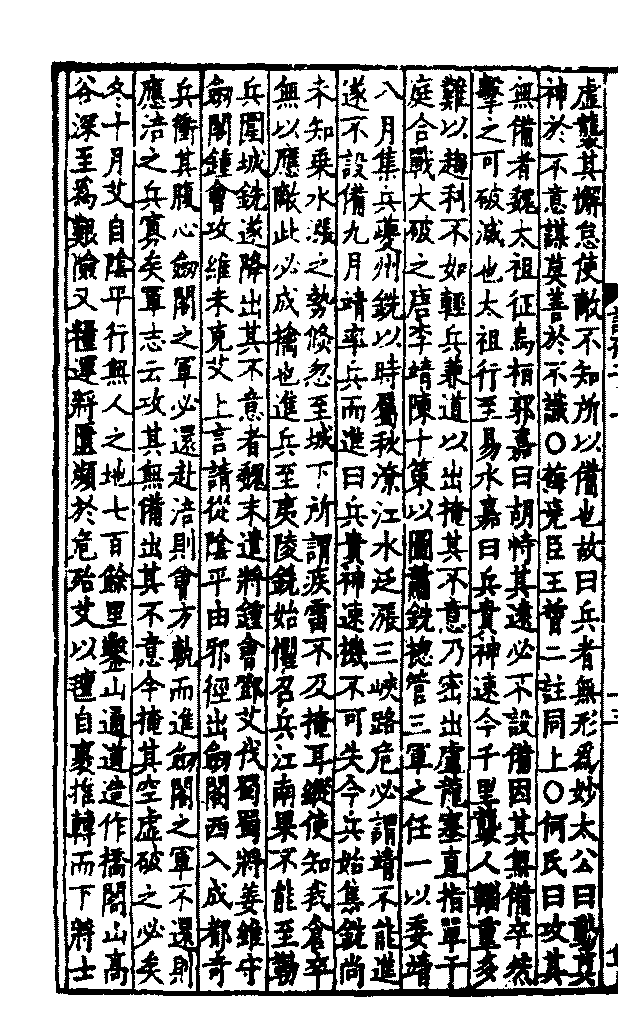 虛襲其懈怠使敵不知所以備也故曰兵者無形爲妙太公曰動莫
神於不意謀莫善於不識○梅堯臣王晳二註同上○何氏曰攻其
無備者魏太祖征烏桓郭嘉曰胡恃其遠必不設備因其無備卒然
擊之可破滅也太祖行至易水嘉曰兵貴神速今千里襲人輜重多
難以趨利不如輕兵兼道以出掩其不意乃密出盧龍塞直指單于
庭合戰大破之唐李靖陳十策以圖蕭銑揔管三軍之任一以委靖
八月集兵夔州銑以時屬秋潦江水泛漲三峽路危必謂靖不能進
遂不設備九月靖率兵而進曰兵貴神速機不可失今兵始集銑尚
未知乗水漲之勢倐忽至城下所謂疾雷不及掩耳縱使知我倉卒
無以應敵此必成擒也進兵至夷陵銑始懼召兵江南果不能至勒
兵圍城銑遂降出其不意者魏末遣將鍾會鄧艾伐蜀蜀將姜維守
劔閣鍾會攻維未克艾上言請從陰平由邪徑出劔閣西入成都奇
兵衝其腹心劔閣之軍必還赴涪則會方軌而進劔閣之軍不還則
應涪之兵寡矣軍志云攻其無備出其不意今掩其空虛破之必矣
冬十月艾自陰平行無人之地七百餘里鑿山通道造作橋閣山高
谷深至爲艱險又糧運將匱頻於危殆艾以氊自裹推轉而下將士